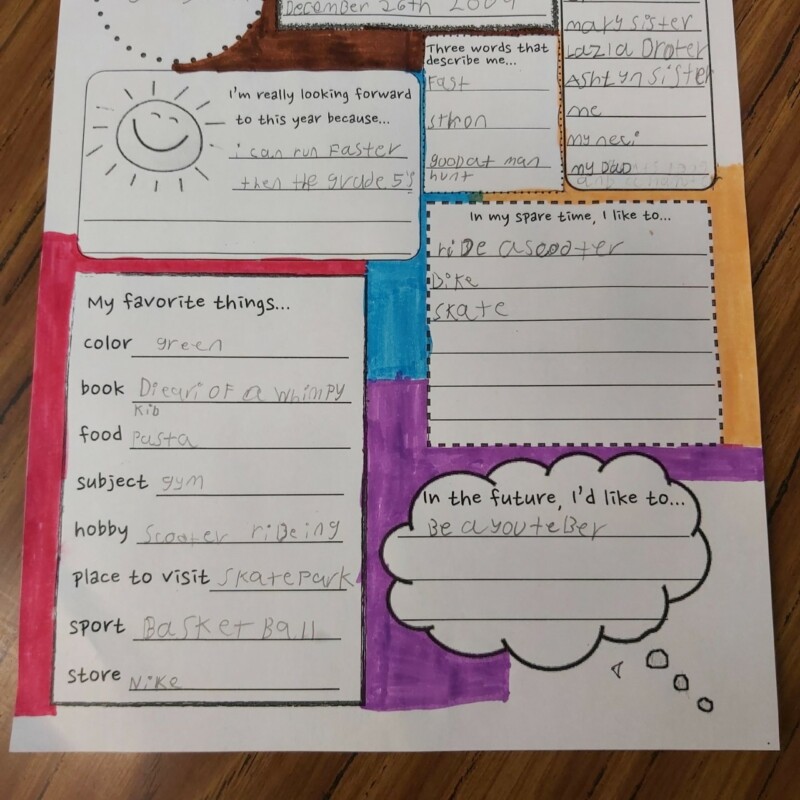 December 26th 2009
mary sister
Lazia Broter
Ashtyn sister
me
my neci
my Dad
Three words that
describe me...
Fast
stron
goodat man
hunt
I'm really looking forward
to this year because...
i can run Faster
then the grade 5's
In my spare time, I like to...
riDe ascooter
Bike
skate
My favorite things...
color green
book Dieari OF a whimpy
Kid
food pasta
subject gym
hobby Scooter riDeing
place to visit skatepark
sport BasketBall
store Nike
In the future, I'd like to...
Be a youteBer